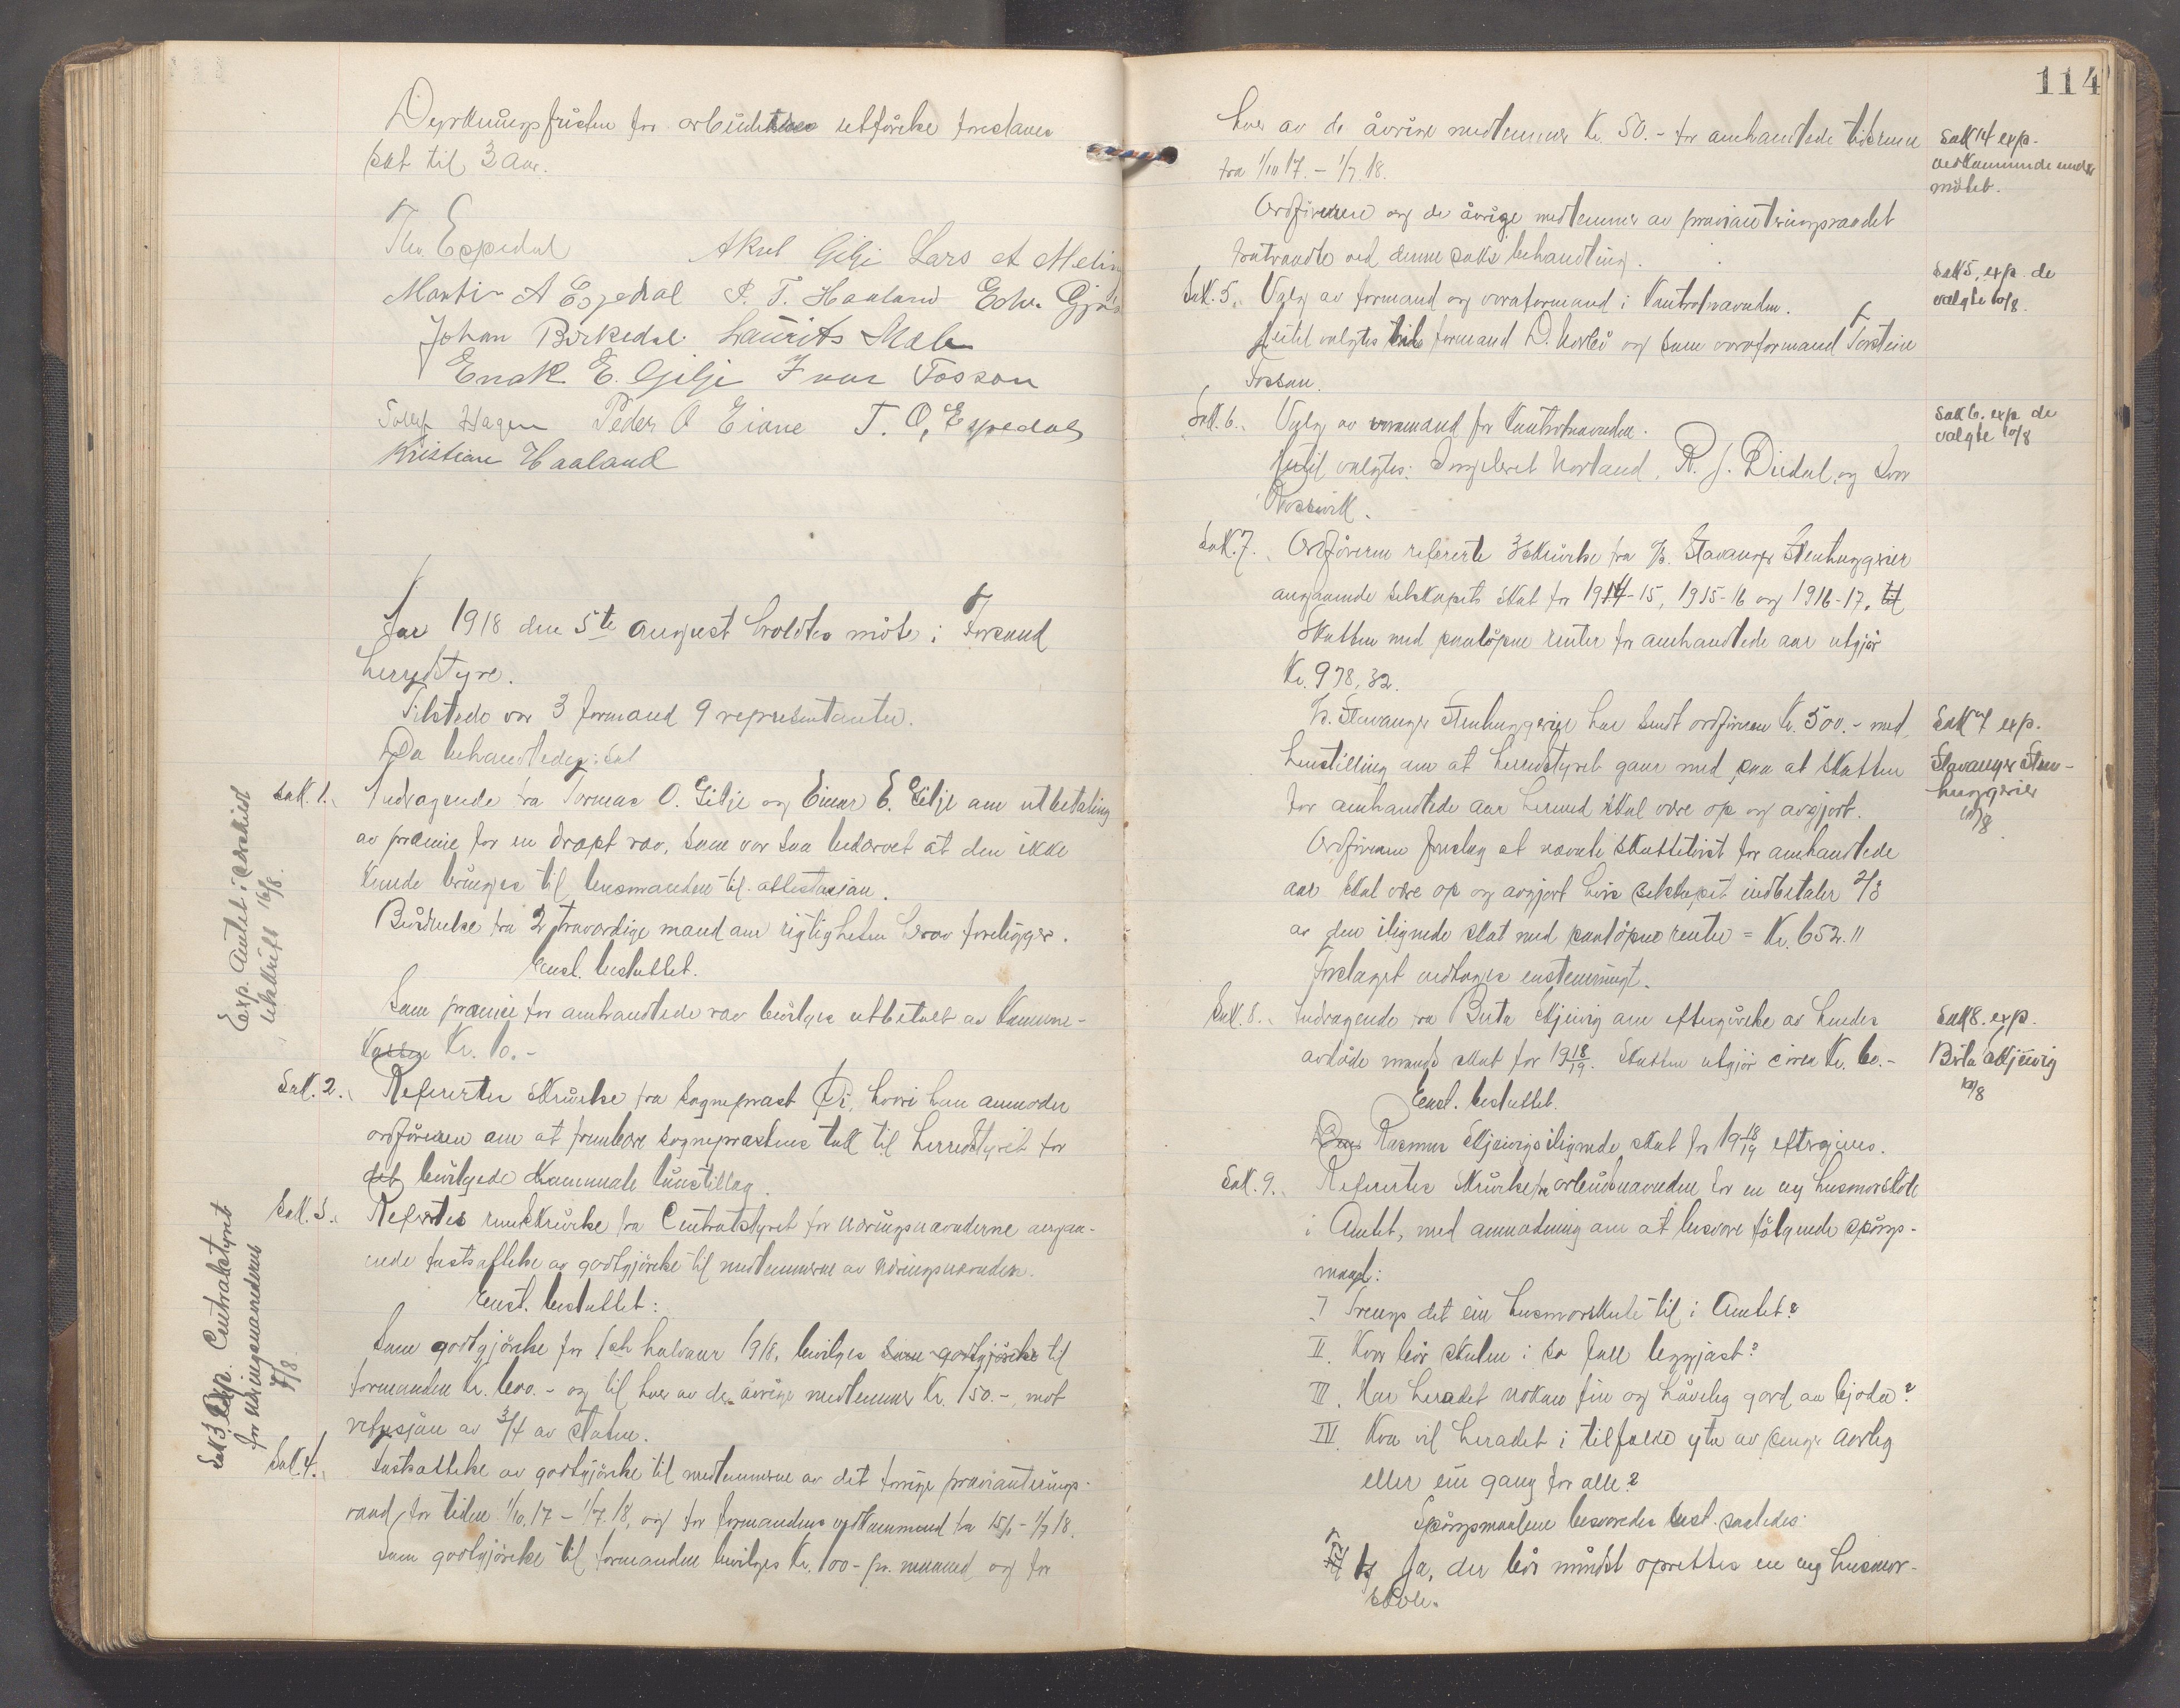 Dyrkningsfristen for arbeidets utførelse foreslaaes
sat til 3 aar.
Thv. Espedal Aksel Gilje Lars A Meling
Martin A Espedal P. T. Haaland Edv. Gjøs
Johan Birkedal Laurits Mæle
Enok E. Gilje Ivar Fossan
Tollef Hagen Peder O Eiane T. O. Espedal
Kristian Haaland
Aar 1918 den 5te august holdtes møte i Forsand
herredstyre.
Tilstede var 3 formænd 9 representanter.
Da behandledes: Sak
Sak. 1. Andragende fra Tormas O. Gilje og Einar E. Gilje om utbetaling
av præmie for en dræpt ræv, som var saa bedærvet at den ikke
kunde bringes til lensmanden til attestasjon.
Bevidnelse fra 2 troværdige mænd om rigtigheten herav foreligger.
Enst. besluttet.
Som præmie for omhandlede ræv bevilges utbetalt av kommune-
kassen Kr. 10.-
Exp. Amtet i særskild
utskrift 16/8.
Sak. 2. Referertes skrivelse fra sogneprest Bø, hvori han anmoder
ordføreren om at frembære sogneprestens tak til herredstyret for
det bevilgede kommunale lønstillæg.
Sak. 3. Refertes rundskrivelse fra Centralstyret for næringsnævnderne angaa-
ende fastsættelse av godtgjørelse til medlemmerne av næringsnævnden.
Enst. besluttet:
Som godtgjørelse for 1ste halvaar 1918, bevilges som godtgjørelse til
formanden Kr. 600.- og til hver av de øvrige medlemmer Kr. 150.-, mot
refusjon av 3/4 av staten.
Sak 3 Exp. Centralstyret
for næringsnævnderne
7/8.
Sak 4. Fastsættelse av godtgjørelse til medlemmerne av det forrige provianterings-
raad, for tiden 1/10.17 - 1/7.18, og for formandens vedkommend fra 15/1 - 1/7 18.
Som godtgjørelse til formanden bevilges Kr. 100- pr. maaned og for
114
hver av de øvrige medlemmer Kr. 50.- for omhandlede tidsrum
fra 1/10 17. - 1/7 18.
Ordføreren og de øvrige medlemmer av provianteringsraadet
fratraadte ved denne saks behandling.
Sak 14 exp.
vedkommende under
møtet.
Sak. 5. Valg av formand og varaformand i kontrolnævnden.
Hertil valgtes som formand D. Norbø og som varaformand Torstein
Fossan.
Sak 5, exp. de
valgte 10/8.
Sak. 6. Valg av varamænd for kontrolnævnden.
Hertil valgtes: Ingeleret Norland, R. J. Diedal, og Ivar
Rossavik.
Sak 6. exp de
valgte 10/8
Sak. 7. Ordføreren refererte 3 skrivelse fra A/S. Stavanger Stenhuggerier
angaaende selskapets skat for 1914-15, 1915-16 og 1916-17, til
Skatten med paaløpne renter for omhandlede aar utgjør
Kr. 978,32.
A/S. Stavanger Stenhuggerier har sendt ordføreren Kr. 500.- med
henstilling om at herredstyret gaar med paa at skatten
for omhandlede aar hermed skal være op og avgjort.
Ordføreren foreslog at nævnte skattetvist for omhandlede
aar skal være op og avgjort hvis selskapet indbetaler 2/3
av den ilignede skat med paaløpne renter = Kr. 652.11
Forslaget vedtoges enstemmigt.
Sak 7 exp.
Stavanger Sten-
huggerier
10/8
Sak. 8. Andragende fra Berta Skjøivig om eftergivelse av hendes
avdøde mands skat for 1918/19. Skatten utgjør cirka Kr. 60.-
Enst. besluttet.
Den Rasmus Skjøivigs ilignede skat for 1918/19 eftergives.
Sak 8. exp.
Berta Skjøivig
10/8
Sak. 9. Refererertes skrivelse fra arbeidsnævnden for en ny husmorskole
i Amtet, med anmodning om at besvare følgende spørgs-
maal:
I Trengs det ein husmorskule til i Amtet?
II. Kvar bør skulen i so fall leggjast?
III. Har heradet nokon fin og høveleg gard aa bjoda?
IV. Kva vil heradet i tilfelde yta av pengar aarleg
eller ein gang for alle?
Spørgsmaalene besvaredes enst. saaledes:
1) Ja, der bør mindst oprettes en ny husmor-
skole.